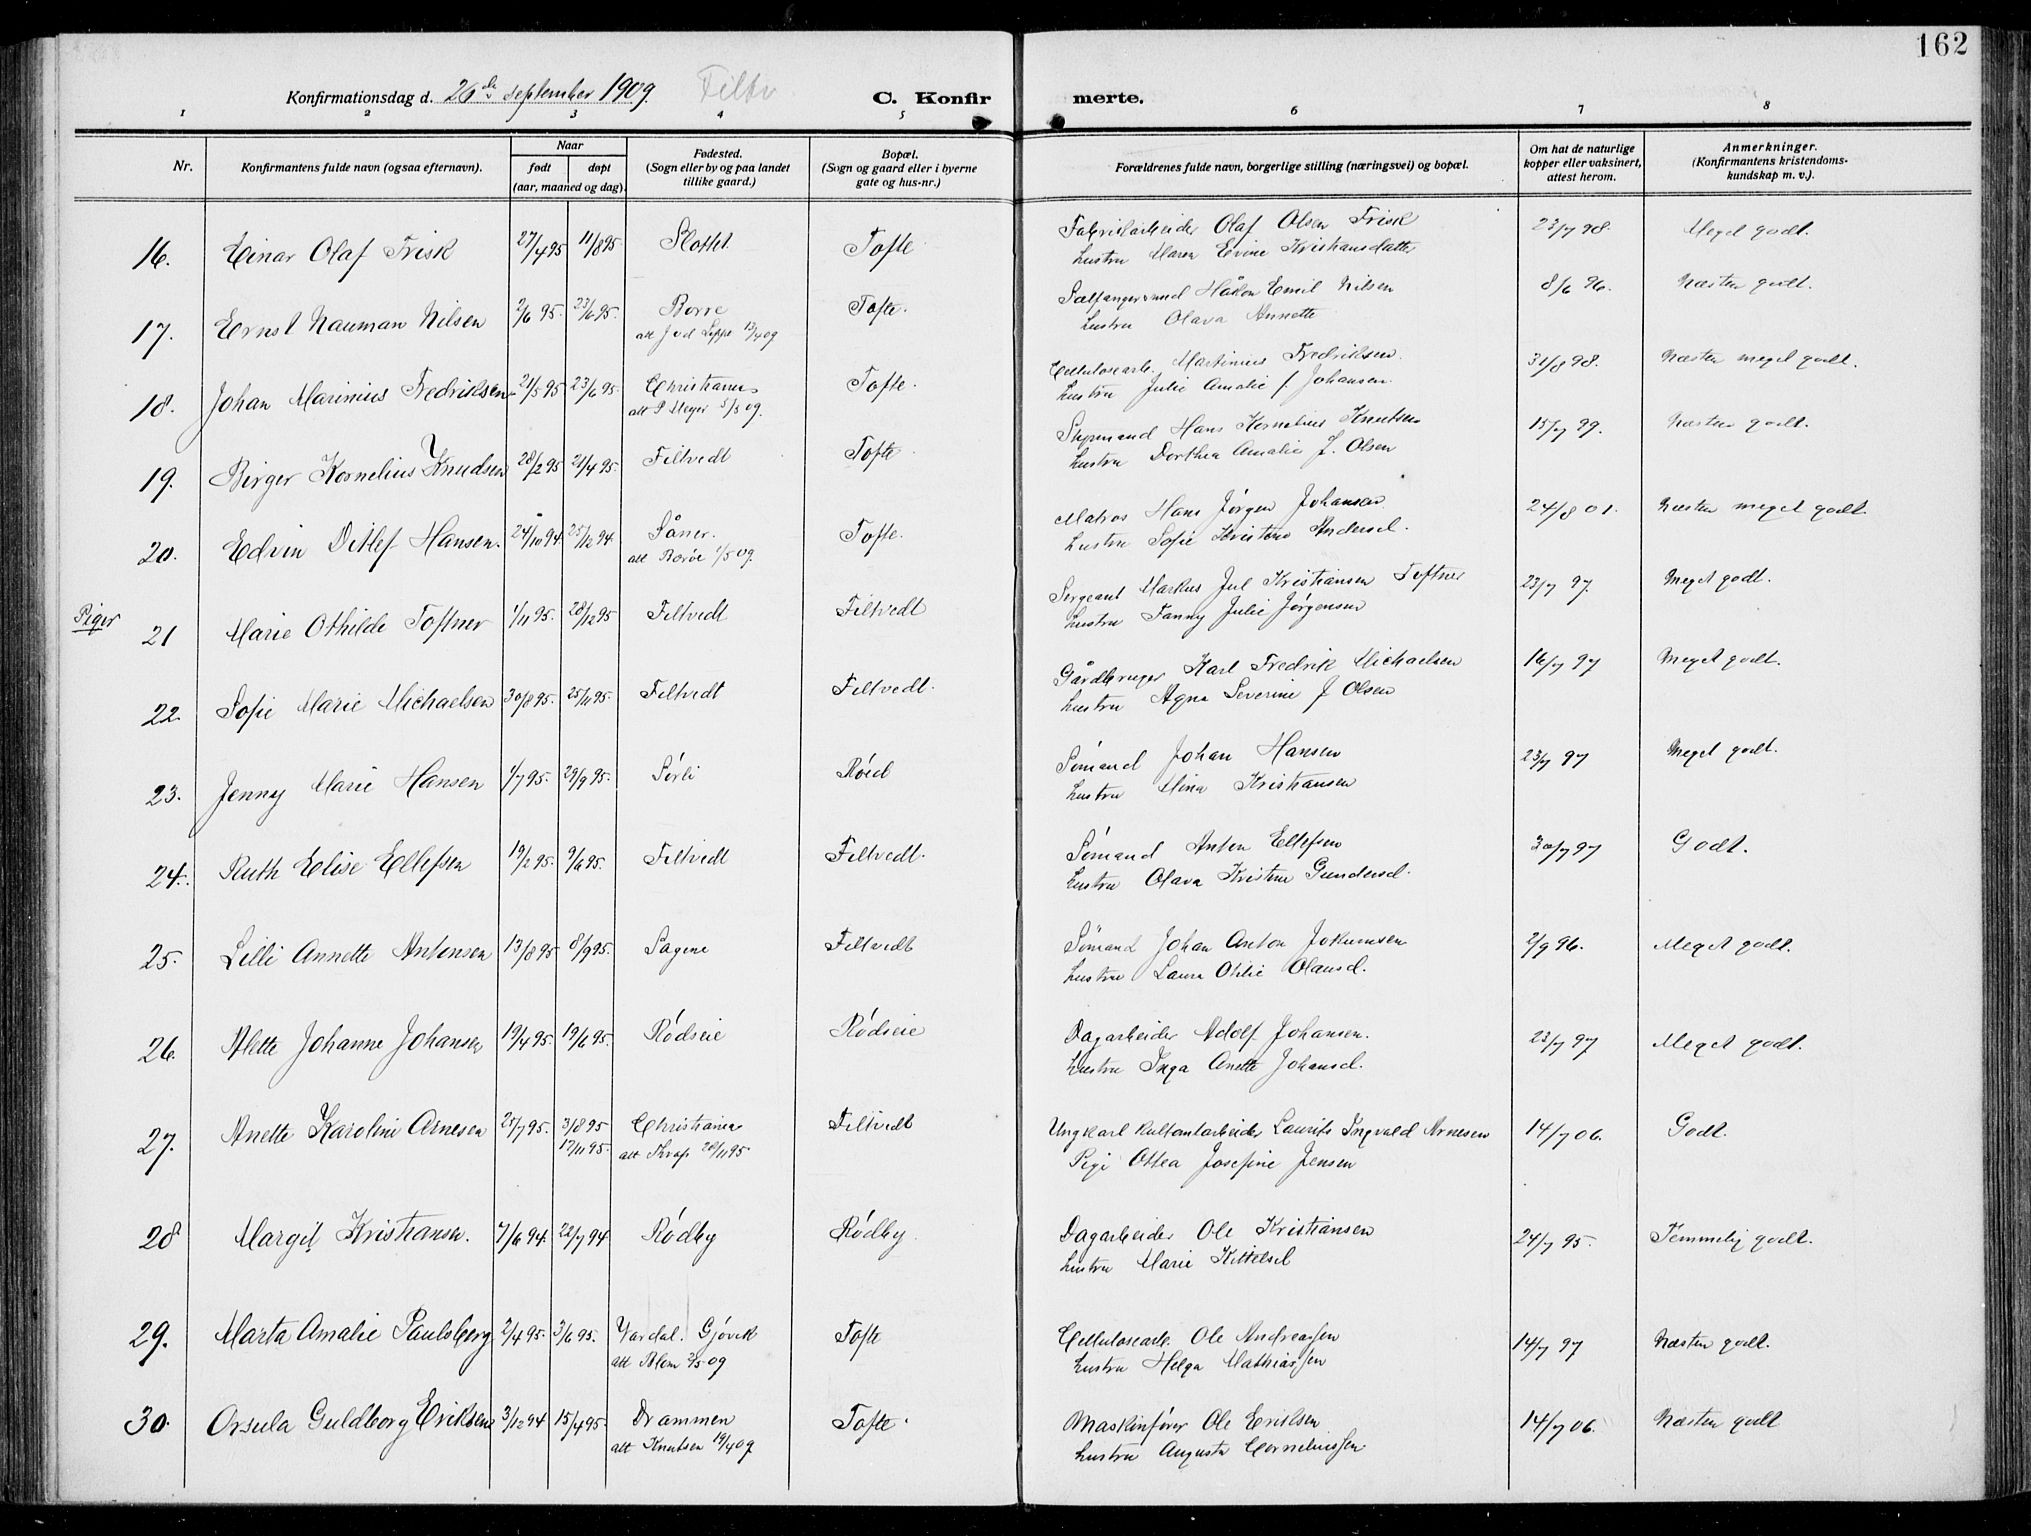 162
Konfirmationsdag d. 26de september 1909. Filtv
C. Konfirmerte.
1 2 3 4 5 6 7 8
Nr. Konfirmantens fulde navn (ogsaa efternavn). Naar født døpt (aar, maaned og dag). Fødested. (Sogn eller by og paa landet tillike gaard.) Bopæl. (Sogn og gaard eller i byerne gate og hus-nr.) Forældrenes fulde navn, borgerlige stilling (næringsvei) og bopæl. Om hat de naturlige kopper eller vaksinert, attest herom. Anmerkninger. (Konfirmantens kristendomskundskap m. v.).
16. Einar Olaf Frisk 27/4 95 11/8 95 Slottet Tofte. Fabrikarbeider Olaf Olsen Frisk 23/7 98. Meget godt.
hustru Maren Evine Kristiansdatter
17. Ernst Nauman Nilsen 2/6 95. 23/6 95. Borre Tofte. Sælfangersmd Håkon Emil Nilsen 8/6 96. Næsten godt.
att J v d Lippe 13/4 09 hustru Olava Annette
18. Johan Marinius Fredriksen 21/5 95 23/6 95. Christiania Tofte. Cellulosearb. Martinius Fredriksen. 31/8 98. Næsten meget godt.
att P Meyer 5/5 09. hustru Julie Amalie f. Johansen.
19. Birger Kornelius Knudsen 28/2 95 21/4 95. Filtvedt Tofte. Styrmand Hans Kornelius Knutsen 15/7 99. Næsten godt.
hustru Dorthea Amalie f. Olsen
20. Edvin Ditlef Hansen. 24/10 94. 25/12 94. Såner. Tofte. Matros Hans Jørgen Johansen 24/8 01. Næsten meget godt.
att Borøe 1/5 09. hustru Sofie Kristine Andersd.
Piger
21 Marie Othilde Toftner 1/11 95. 28/12 95 Filtvedt Filtvedt Sergeant Markus Jul Kristiansen Toftner 23/7 97. Meget godt.
hustru Fanny Julie Jørgensen
22. Sofie Marie Michaelsen 30/8 95. 25/11 95. Filtvedt Filtvedt. Gårdbruger Karl Fredrik Michaelsen 16/7 97 Meget godt.
hustru Agna Severine f Olsen
23. Jenny Marie Hansen 1/7 95. 29/9 95. Sørli Røed Sømand Johan Hansen 23/7 97 Meget godt.
hustru Mina Kristiansen
24. Ruth Elise Ellefsen 19/2 95. 9/6 95. Filtvedt Filtvedt. Sømand Anton Ellefsen 30/7 97 Godt.
hustru Olava Kristine Gundersd.
25. Lilli Annette Antonsen 13/8 95 8/9 95. Sagene Filtvedt Sømand Johan Anton Jokumsen 2/9 96. Meget godt.
hustru Laura Otilie Olausd.
26. Alette Johanne Johansen 19/4 95. 19/6 95. Rødseie Rødseie Dagarbeider Adolf Johansen. 23/7 97 Meget godt.
hustru Inga Anette Johansd.
27. Anette Karoline Arnesen 25/7 95. 3/8 95 Christiania Filtvedt Ungkarl kultantarbeider Laurits Ingvald Arnesen 14/7 06. Godt.
17/11 95. att Thrap 20/11 95 Pige Ottea Josefine Jensen
28 Margit Kristiansen. 7/6 94. 22/7 94 Rødby Rødby. Dagarbeider Ole Kristiansen 24/7 95. Temmelig godt.
hustru Marie Kittelsd
29. Marta Amalie Paulsberg 2/4 95. 3/6 95. Vardal. Gjøvik Tofte Cellulosearb. Ole Andreassen 14/7 97 Næsten godt.
att Blom 2/5 09 hustru Helga Mathiassen
30. Orsula Guldborg Eriksen 3/12 94 15/4 95. Drammen Tofte. Maskinfører Ole Eriksen 14/7 06. Næsten godt
att Knutsen 19/4 09 hustru Augusta Corneliussen